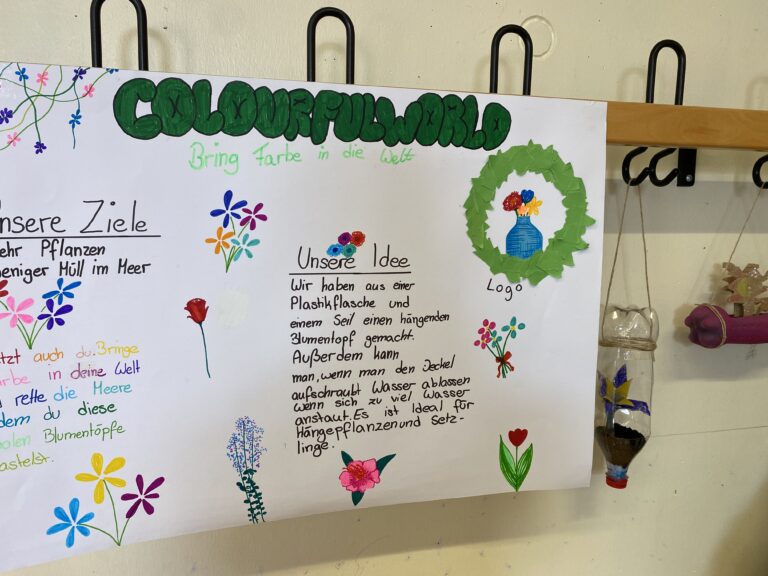 COLOURFULWORLD
Bring Farbe in die Welt
nsere Ziele
ehr Pflanzen
eniger Müll im Meer
tzt auch du. Bringe
arbe in deine Welt
rette die Meere
dem du diese
Blumentöpfe
astelst.
Unsere Idee
Wir haben aus einer
Plastikflasche und
einem Seil einen hängenden
Blumentopf gemacht.
Außerdem kann
man, wenn man den Deckel
aufschraubt Wasser ablassen
wenn sich zu viel Wasser
anstaut. Es ist Ideal für
Hängepflanzen und Setz-
linge.
Logo